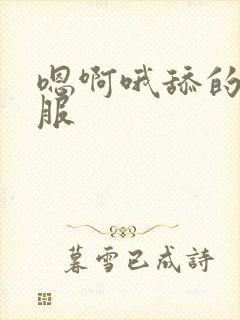 嗯啊哦舔的
服
暮雪已成詩